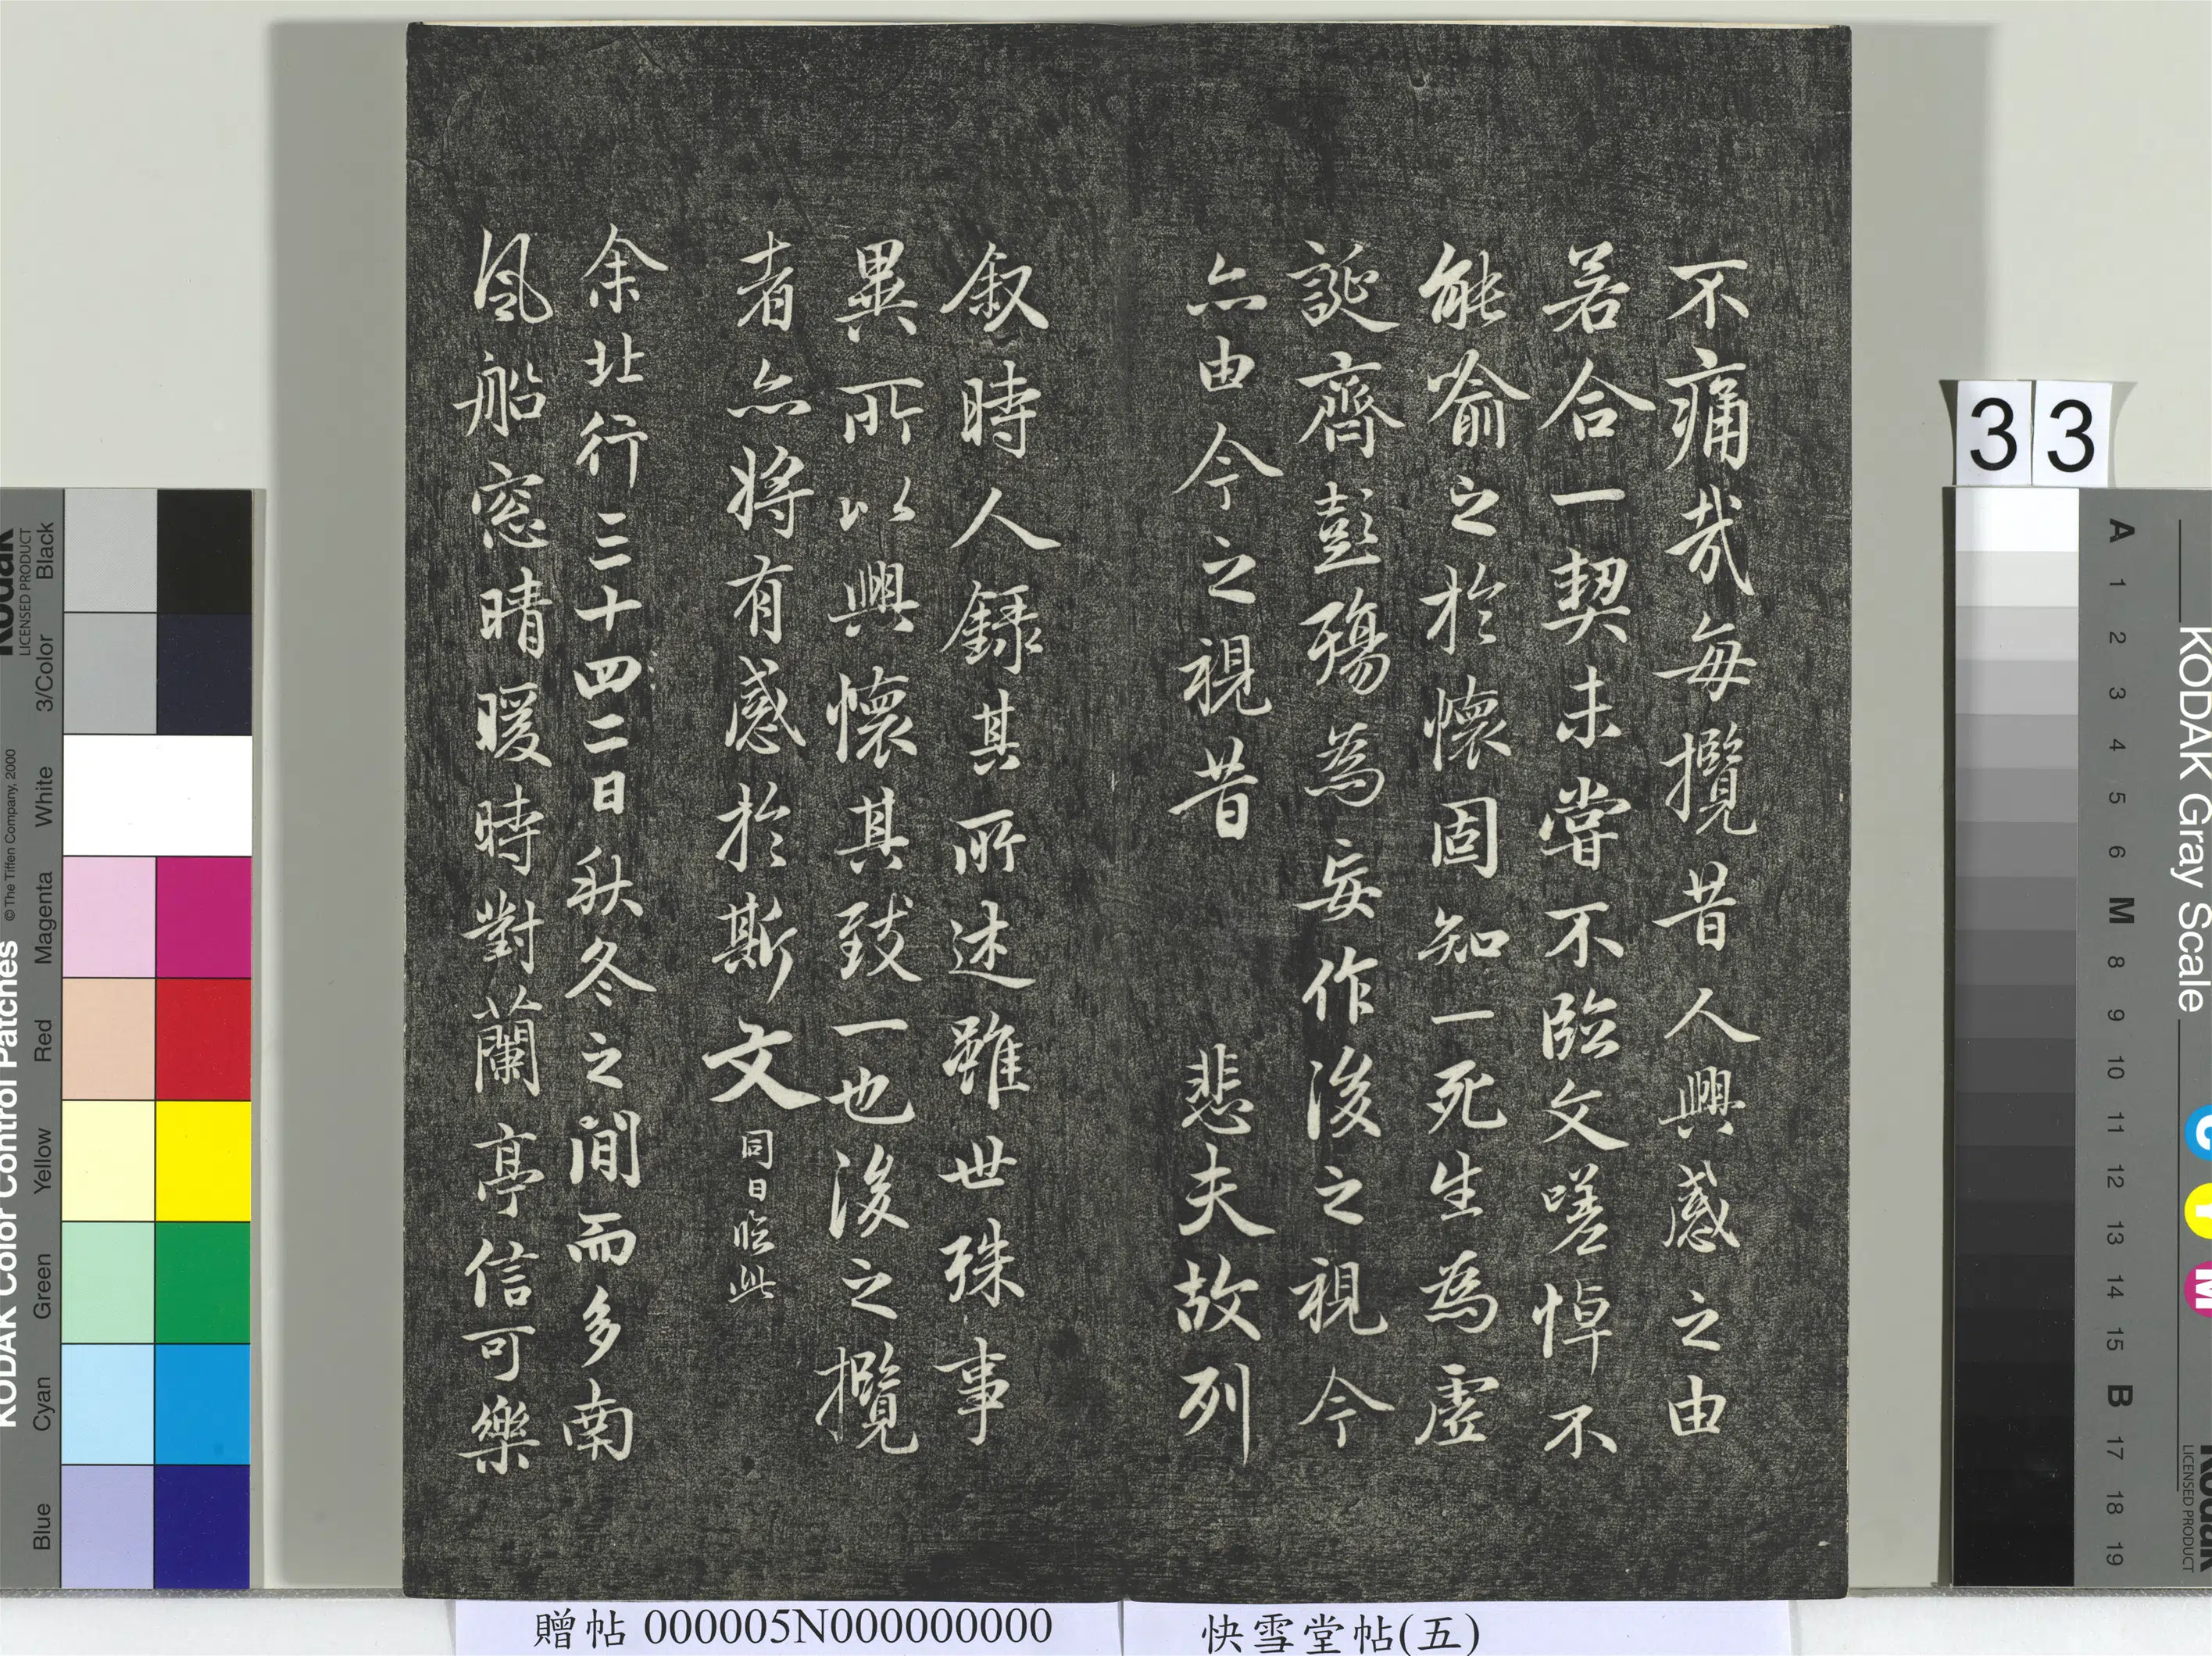 不痛哉每攬昔人興感之由
若合一契未甞不臨文嗟悼不
能喻之於懷固知一死生為虛
誕齊彭殤為妄作後之視今
亦由今之視昔 悲夫故列
叙時人錄其所述雖世殊事
異所以興懷其致一也後之攬
者亦將有感於斯文同日臨此
余北行三十四二日秋冬之間而多南
風船窓晴暖時對蘭亭信可樂
贈帖 000005N000000000
快雪堂帖(五)
33
KODAK Color Control Patches
© The Tiffen Company, 2000
Kodak
LICENSED PRODUCT
Blue
Cyan
Green
Yellow
Red
Magenta
White
3/Color
Black
KODAK Gray Scale
Kodak
LICENSED PRODUCT
C
Y
M
A 1 2 3 4 5 6 M 8 9 10 11 12 13 14 15 B 17 18 19